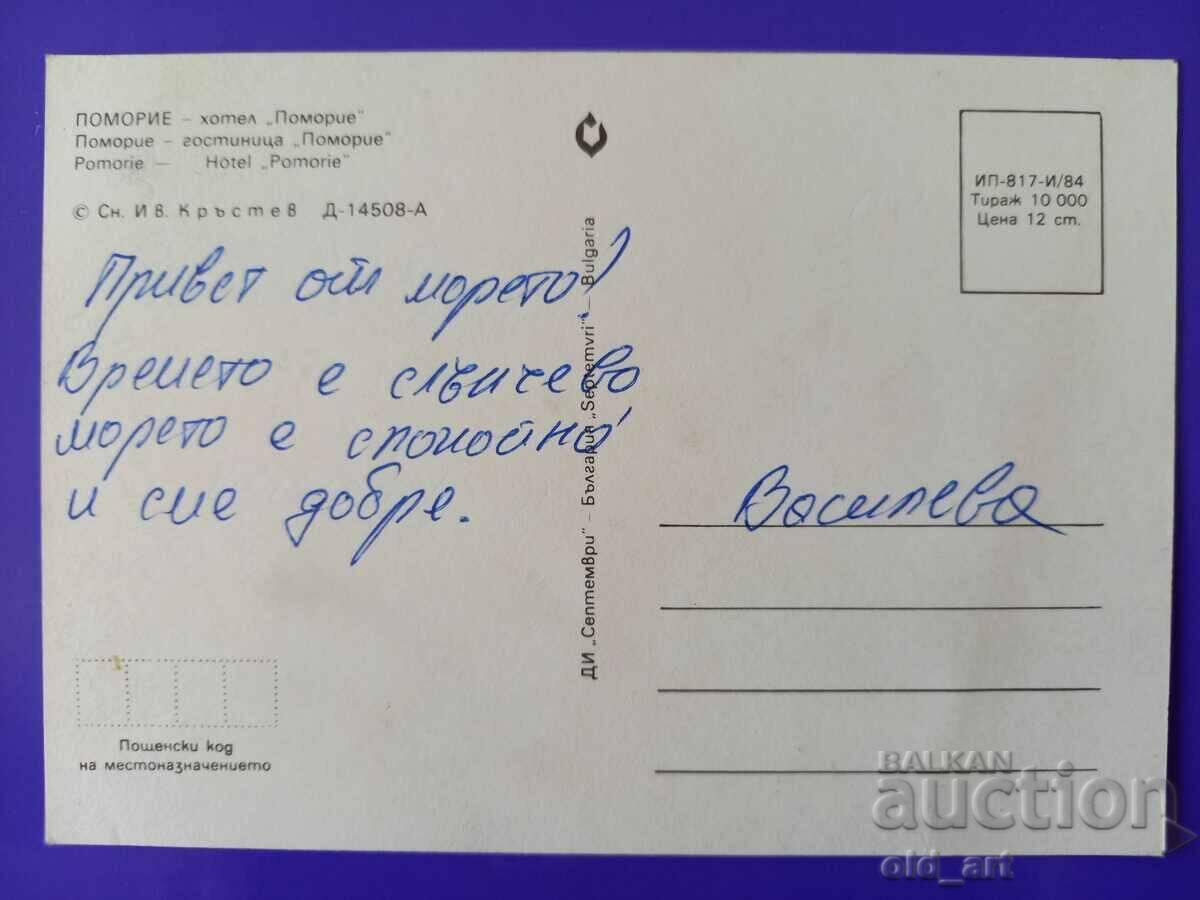 ПОМОРИЕ – хотел „Поморие"
Поморие – гостиница „Поморие"
Pomorie — Hotel „Pomorie"
© Сн. Ив. Кръстев Д-14508-А
Привет от морето!
Времето е слънчево
морето е спокойно
и сме добре.
Пощенски код
на местоназначението
ДИ „Септември" – България „Septemvri" – Bulgaria
ИП-817-И/84
Тираж 10 000
Цена 12 ст.
Василева
BALKAN
auction
old_art